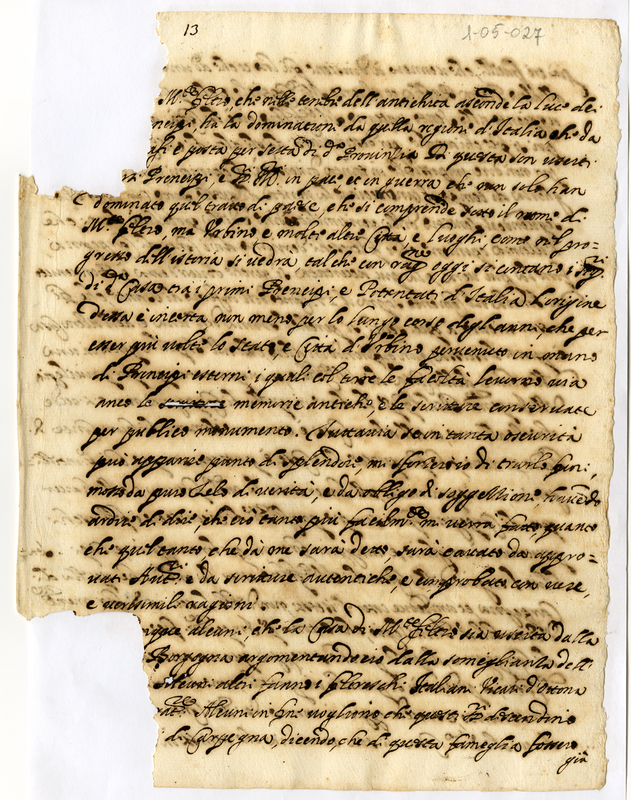 13
1-05-027
M.te Feltro, che nelle tenebre dell'antichita asconde la luce de i
ha la dominatione da quella regione d'Italia che da
e posta per sesta di d.a Provintia Da questa son usciti
Prencipi, e in pace, et in guerra che non solo han
dominato quel tratto di paese, che si comprende sotto il nome di
M.te Feltro, ma Urbino e molti altri Città, e luoghi, come nel pro=
gresso dell'istoria si vedrà, tal che con rag.ne oggi si contano i
di d.a Casa tra i primi Prencipi, e Potentati d'Italia L'origine
d'essa è incerta non meno per lo lungo corso degl'anni, che per
esser più volte lo stato, e Città d'Urbino pervenuto in mano
di Prencipi esterni i quali col torre le facoltà levorno via
anco le memorie antiche, e le scritture conservate
per publico monumento. Tuttavia se in tanta oscurità
può apparire punto di splendore, mi sforzerò di trarlo fuori,
moto da puro zelo di verità, e da obligo di soggettione,
ardire di dire, che ciò tanto più facilm.te mi verrà fatto, quanto
che quel tanto che da me sarà detto, sarà cavato da appro=
vati Aut.ri e da scritture autentiche, e comprobato con vere,
e verisimili ragioni
alcuni, che la Casa di M.te Feltro sia uscita dalla
Borgogna argomentando ciò dalla somiglianza dell'
altri fanno i Italiani Vicari d'
Alcuni in fine vogliono che questi descendino
di Carpegna, dicendo, che di questa fameglia fossero
già